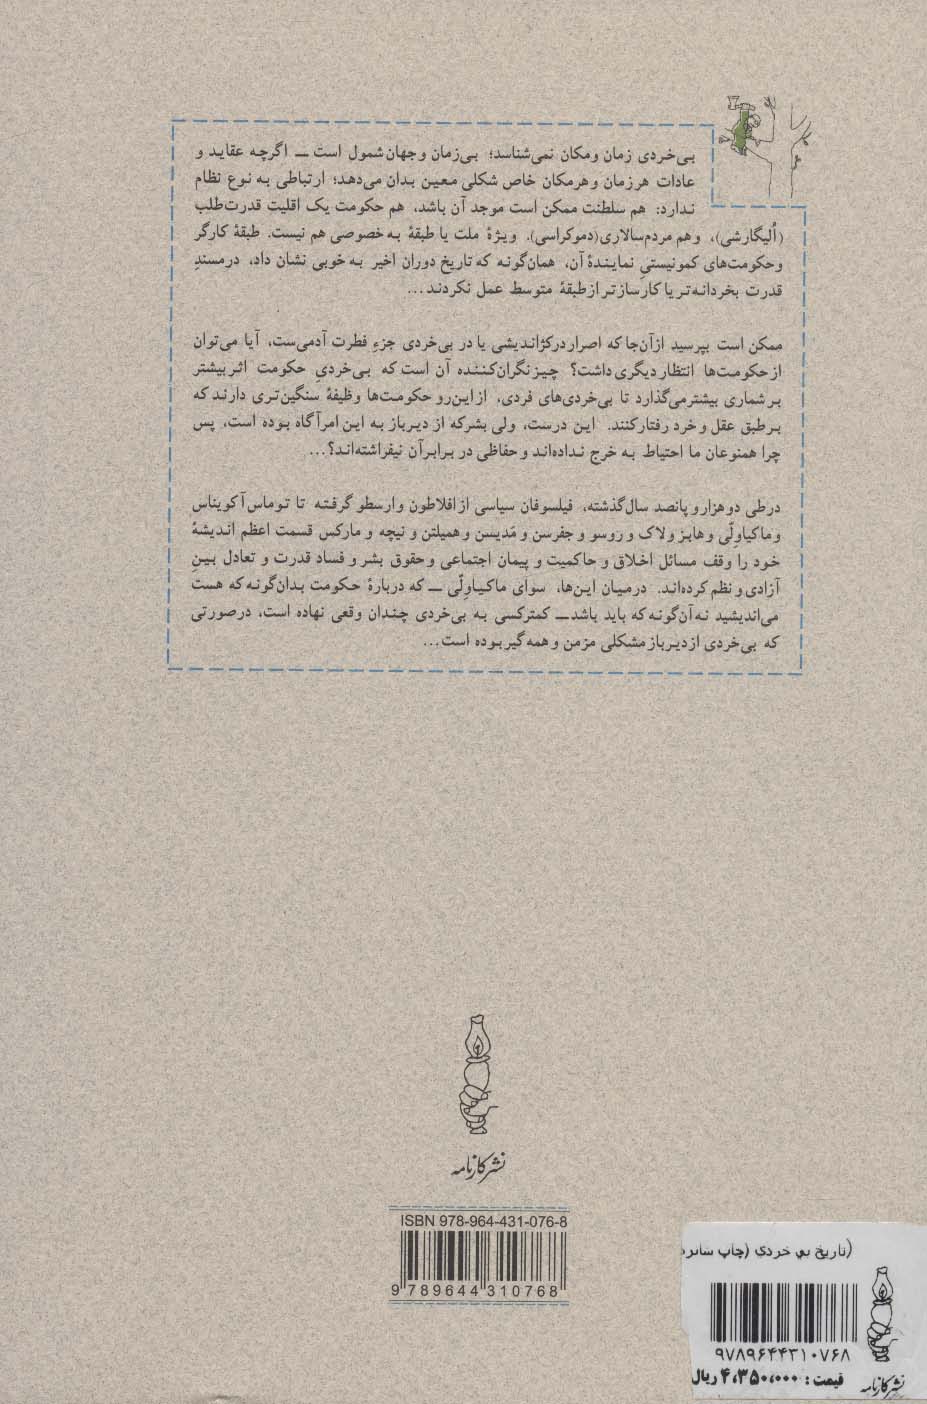 بی‌خردی زمان و مکان نمی‌شناسد؛ بی‌زمان و جهان شمول است — اگرچه عقاید و
عادات هر زمان و هر مکان خاص شکلی معین بدان می‌دهد؛ ارتباطی به نوع نظام
ندارد: هم سلطنت ممکن است موجد آن باشد، هم حکومت یک اقلیت قدرت‌طلب
(اُلیگارشی)، و هم مردم‌سالاری (دموکراسی). ویژهٔ ملت یا طبقهٔ به خصوصی هم نیست. طبقهٔ کارگر
و حکومت‌های کمونیستیِ نمایندهٔ آن، همان‌گونه که تاریخ دوران اخیر به خوبی نشان داد، در مسندِ
قدرت بخردانه‌تر یا کارسازتر از طبقهٔ متوسط عمل نکردند...
ممکن است بپرسید از آن‌جا که اصرار در کژاندیشی یا در بی‌خردی جزءِ فطرت آدمی‌ست، آیا می‌توان
از حکومت‌ها انتظار دیگری داشت؟ چیز نگران‌کننده آن است که بی‌خردیِ حکومت اثر بیشتر
بر شماری بیشتر می‌گذارد تا بی‌خردی‌های فردی، از این‌رو حکومت‌ها وظیفهٔ سنگین‌تری دارند که
بر طبق عقل و خرد رفتار کنند. این درست، ولی بشر که از دیرباز به این امر آگاه بوده است، پس
چرا همنوعان ما احتیاط به خرج نداده‌اند و حفاظی در برابر آن نیفراشته‌اند؟...
در طی دو هزار و پانصد سال گذشته، فیلسوفان سیاسی از افلاطون و ارسطو گرفته تا توماس آکویناس
و ماکیاولّی و هابز و لاک و روسو و جفرسن و مَدیسن و همیلتن و نیچه و مارکس قسمت اعظم اندیشهٔ
خود را وقف مسائل اخلاق و حاکمیت و پیمان اجتماعی و حقوق بشر و فساد قدرت و تعادل بینِ
آزادی و نظم کرده‌اند. در میان این‌ها، سوای ماکیاولّی — که دربارهٔ حکومت بدان‌گونه که هست
می‌اندیشید نه آن‌گونه که باید باشد — کمتر کسی به بی‌خردی چندان وقعی نهاده است، در صورتی
که بی‌خردی از دیرباز مشکلی مزمن و همه‌گیر بوده است...
نشر کارنامه
ISBN 978-964-431-076-8
9 789644 310768
(تاریخ بی خردی (چاپ
۹۷۸۹۶۴۴۳۱۰۷۶۸
قیمت : ۴،۳۵۰،۰۰۰ ریال
نشر کارنامه